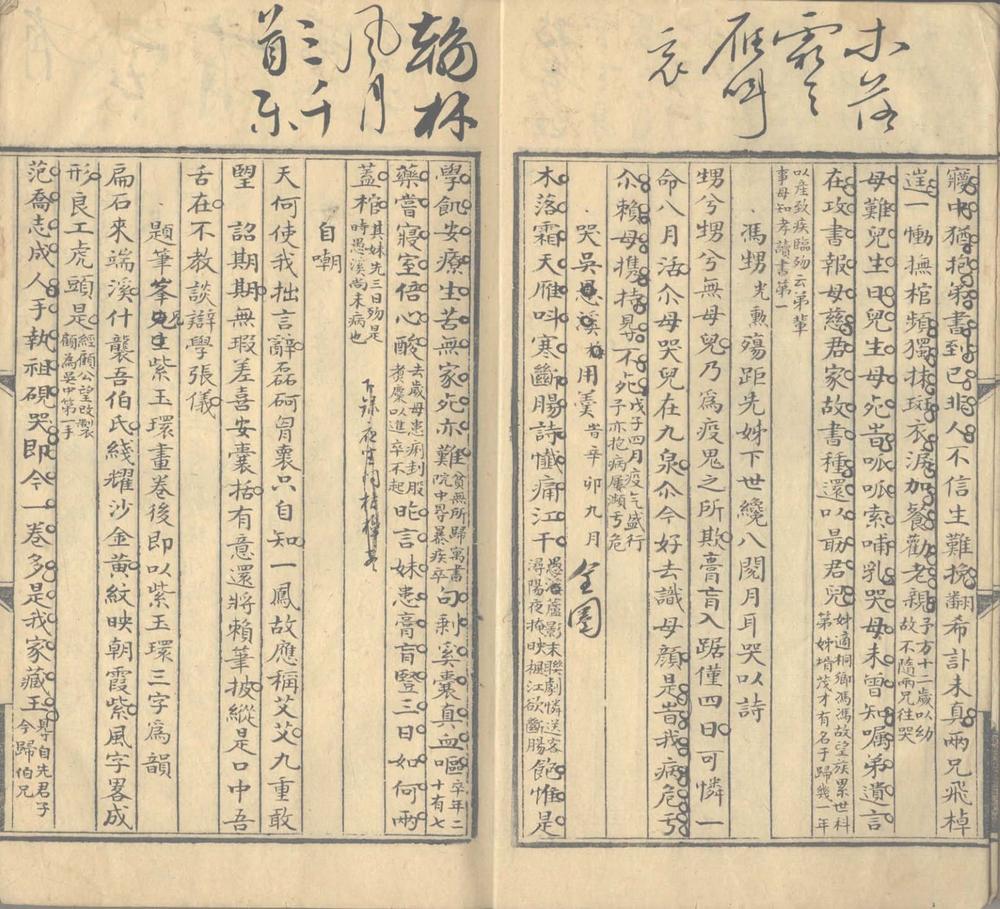 木落
霜天
雁叫
哀
寢中猶抱弟書到已非人不信生難挽翻希訃未真兩兄飛棹
一慟撫棺頻獨抹斑衣淚加餐勸老親予方十二歲以幼故不隨兩兄往哭
母難兒生日兒生母死嘗呱呱索哺乳哭母未曾知嘱弟遺言
在攻書報母慈君家故書種還以勗君兒姊適桐鄉馮馮故望族累世科第姊壻茂才有名子歸幾一年
以產致疾臨殁云弟輩事母知孝讀書第一
馮甥光勳殤距先姊下世纔八閱月耳哭以詩
甥兮甥兮無母兒乃爲疫鬼之所欺膏肓入踞僅四日可憐一
命八月活尒母哭兒在九泉尒今好去識母顔是嘗我病危亐
尒賴母携持得不死戊子四月疫氣盛行予亦抱病屢瀕于危
哭吳愚溪用羹嘗辛卯九月
全圈
木落霜天雁呌寒斷腸詩懺痛江干愚溪蘆影末聯劇憐送客潯陽夜掩映楓江欲斷腸飽惟是
翰林
風月
三千
首 樂
學飢安療生苦無家死亦難貧無所歸寓書院中畧暴疾卒句剩奚囊真血嘔卒年二十有七
藥嘗寢室倍心酸去歲母患痢刲股煑糜以進卒不起昨言妹患膏肓豎三日如何兩
蓋棺其妹先三日殁是時愚溪尚未病也
自嘲
天何使我拙言辭磊砢胷襄只自知一鳳故應稱艾艾九重敢
朢詔期期無瑕差喜安囊括有意還將賴筆披縱是口中吾
舌在不教談辯學張儀
題筆峯兄紫玉環畫卷後即以紫玉環三字爲韻
扁石來端溪什襲吾伯氏綫耀沙金黄紋映朝霞紫風字畧成
形良工虎頭是經顧公望改製顧為吳中第一手
范喬志成人手執祖硯哭即今一卷多是我家藏玉㝵自先君子今歸伯兄